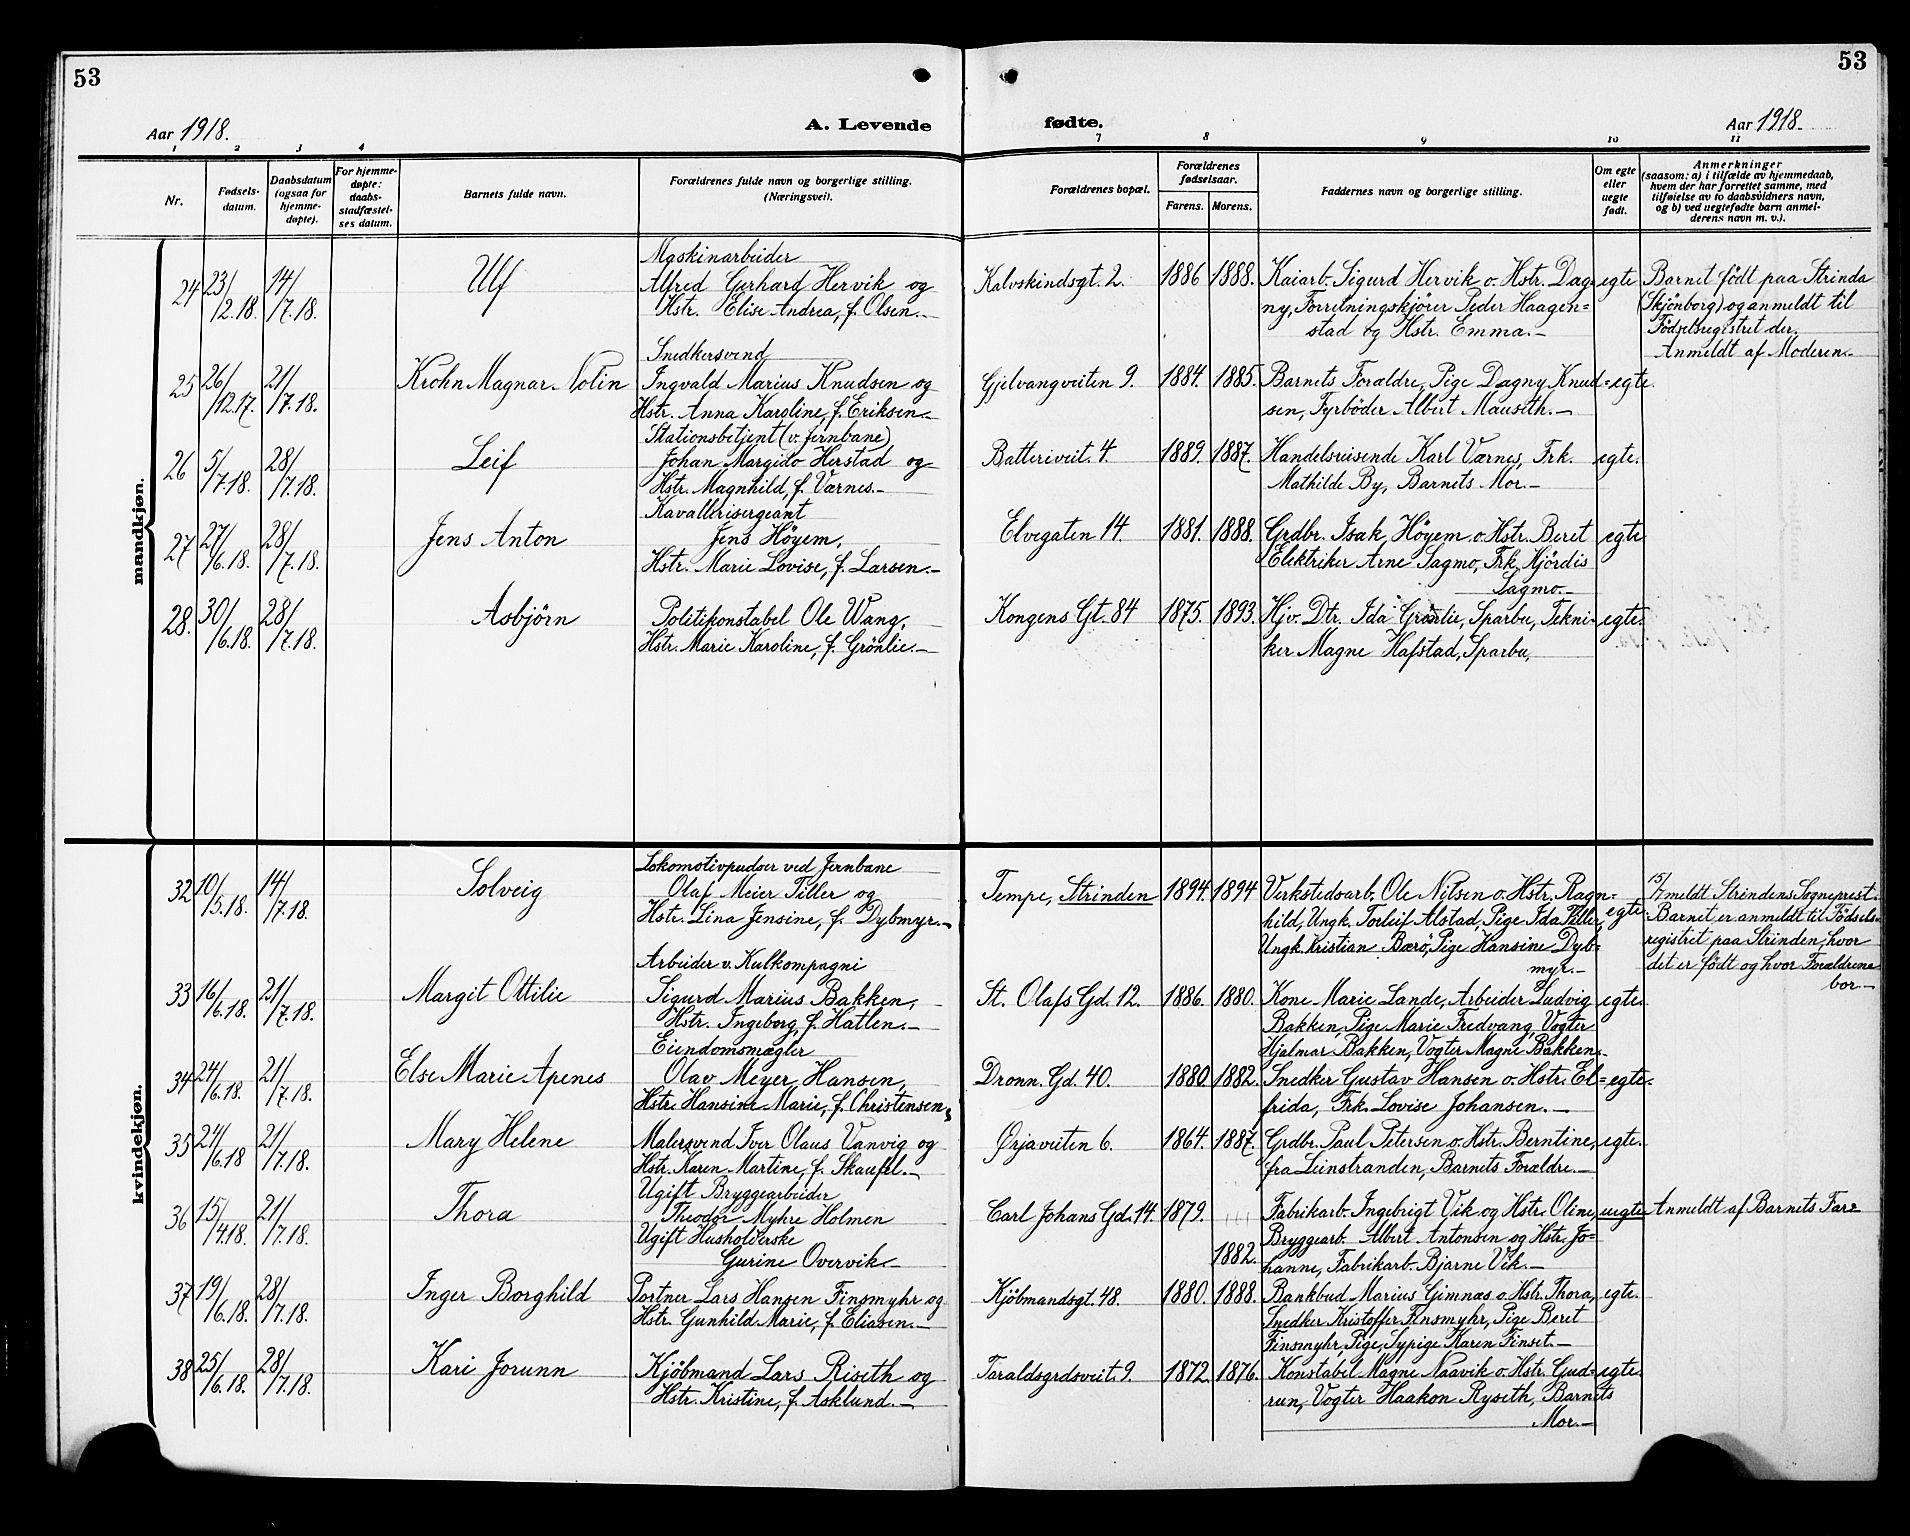 53
53
Aar 1918.
A. Levende
fødte.
Aar 1918.
1
2
3
4
7
8
9
10
11
Nr.
Fødsels-
datum.
Daabsdatum
(ogsaa for
hjemme-
døpte).
For hjemme-
døpte:
daabs-
stadfæstel-
ses datum.
Barnets fulde navn.
Forældrenes fulde navn og borgerlige stilling.
(Næringsvei).
Forældrenes bopæl.
Forældrenes
fødselsaar.
Farens.
Morens.
Faddernes navn og borgerlige stilling.
Om egte
eller
uegte
født.
Anmerkninger
(saasom: a) i tilfælde av hjemmedaab,
hvem der har forrettet samme, med
tilføielse av to daabsvidners navn,
og b) ved uegtefødte barn anmel-
derens navn m. v.).
mandkjøn.
24
23/2.18.
14/7.18.
Ulf
Maskinarbeider
Alfred Gerhard Hervik og
Hstr. Elise Andrea, f. Olsen.-
Kalvskindsgt. 2.
1886
1888.
Kaiarb. Sigurd Hervik o. Hstr. Dag-
ny, Forretningskjörer Peder Haagen=
stad og Hstr. Emma.-
egte
Barnet födt paa Strinda
(Skjönborg) og anmeldt til
Födselsregistret der.
Anmeldt af Moderen.-
25
26/12.17.
21/7.18.
Krohn Magnar Nolin
Snedkersvend
Ingvald Marius Knudsen og
Hstr. Anna Karoline, f. Eriksen.-
Gjelvangveiten 9.
1884.
1885.
Barnets Forældre, Pige Dagny Knud=
sen, Fyrböder Albert Mauseth.-
egte.
26
5/7.18.
28/7.18.
Leif
Stationsbetjent (v. Jernbane)
Johan Margido Herstad og
Hstr. Magnhild, f. Værnes.-
Batteriveit. 4.
1889.
1887.
Handelsreisende Karl Værnes, Frk.
Mathilde By, Barnets Mor.-
egte.
27
27/6.18.
28/7.18.
Jens Anton
Kavallerisergeant
Jens Höyem,
Hstr. Marie Lovise, f. Larsen.-
Elvegaten 14.
1881.
1888.
Grdbr. Isak Höyem o. Hstr. Beret
Elektriker Arne Sagmo, Frk. Hjördis
Sagmo.-
egte
28.
30/6.18.
28/7.18.
Asbjörn
Politikonstabel Ole Wang,
Hstr. Marie Karoline, f. Grönlie.-
Kongens Gt. 84
1875.
1893.
Hjv. Dtr. Ida Grönlie, Sparbu, Tekni-
ker Magne Hafstad, Sparbu,
egte.
kvindekjøn.
32
10/5.18.
14/7.18.
Solveig
Lokomotivpudser ved Jernbane
Olaf Meier Tiller og
Hstr. Lina Jensine, f. Dybmyr.-
Tempe, Strinden
1894.
1894
Verkstedsarb. Ole Nilsen o. Hstr. Ragn-
hild, Ungk. Torleif Alstad, Pige Ida Tiller,
Ungk. Kristian Bærö, Pige Hansine Dyb=
myr.-
egte.
15/7 meldt Strindens Sogneprest.
Barnet er anmeldt til Födsels-
registret paa Strinden, hvor
det er födt og hvor Forældrene
bor.-
33
16/6.18.
21/7.18.
Margit Ottilie
Arbeider v. Kulkompagni
Sigurd Marius Bakken,
Hstr. Ingeborg, f. Hatlen.-
St. Olafs Gd. 12.
1886.
1880.
Kone Marie Lande, Arbeider Ludvig
Bakken, Pige Marie Fredvang, Vogter
Hjalmar Bakken, Vogter Magne Bakken.-
egte.
34
24/6.18.
21/7.18.
Else Marie Apenes
Eiendomsmægler
Olav Meyer Hansen,
Hstr. Hansine Marie, f. Christensen.
Dronn. Gd. 40.
1880
1882.
Snedker Gustav Hansen o. Hstr. El=
frida, Frk. Lovise Johansen.-
egte.
35
24/6.18
21/7.18.
Mary Helene
Malersvend Iver Olaus Vanvig og
Hstr. Karen Martine, f. Skaufel.-
Ørjaveiten 6.
1864.
1887.
Grdbr. Paul Petersen o. Hstr. Berntine,
fra Leinstranden, Barnets Forældre.-
egte.
36
15/4.18.
21/7.18.
Thora
Ugift Bryggearbeider
Theodor Myhre Holmen
Ugift Husholderske
Gurine Overvik.-
Carl Johans Gd. 14.
1879.
1882.
Fabrikarb. Ingebrigt Vik og Hstr. Oline,
Bryggearb. Albert Antonsen og Hstr. Jo=
hanne, Fabrikarb. Bjarne Vik.-
uegte
Anmeldt af Barnets Far=
37
19/6.18.
28/7.18.
Inger Borghild
Portner Lars Hansen Finsmyhr og
Hstr. Gunhild Marie, f. Eliasen.-
Kjöbmandsgt. 48.
1880.
1888.
Bankbud Marius Gimnæs o. Hstr. Thora,
Snedker Kristoffer Finsmyhr, Pige Beret
Finsmyhr, Pige, Sypige Karen Finset.-
egte.
38
25/6.18.
28/7.18.
Kari Jorunn
Kjöbmand Lars Riseth og
Hstr. Kristine, f. Asklund.-
Taraldsgrdsveit. 9.
1872.
1876.
Konstabel Magne Naavik o. Hstr. Gud-
run, Vogter Haakon Ryseth, Barnets
Mor.-
egte.